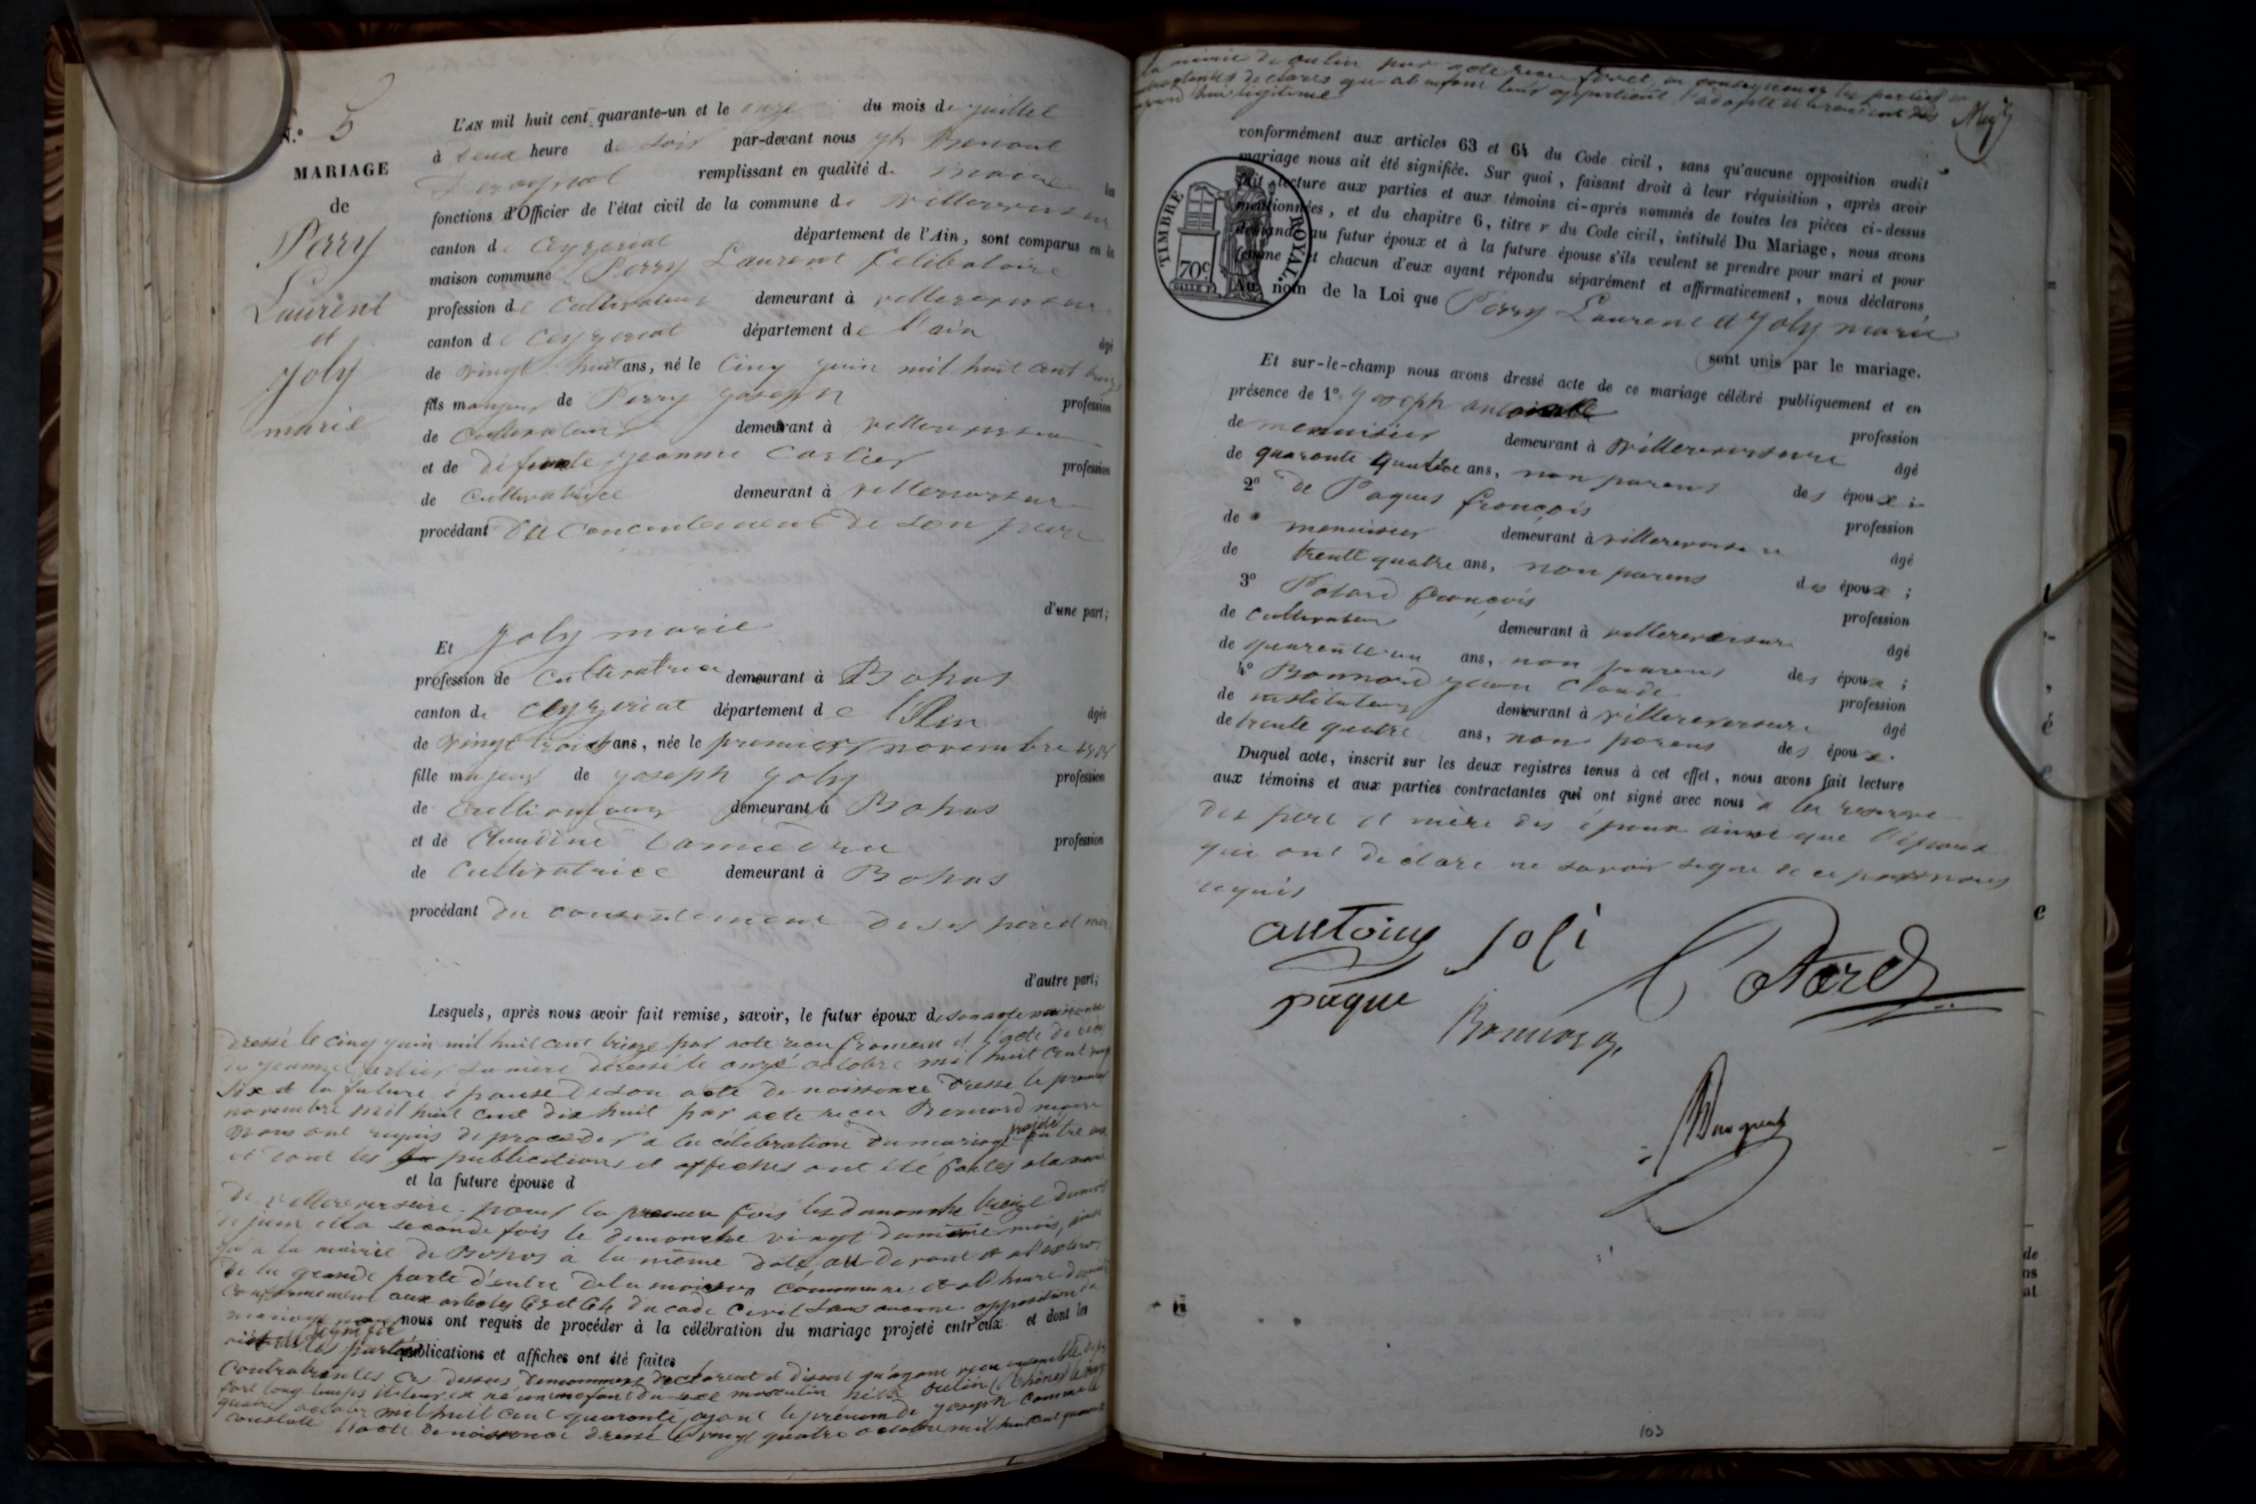 N.º 5
MARIAGE
de
Perry
Laurent
et
Joly
marie
L'AN mil huit cent quarante-un et le onze du mois de juillet
à deux heure de soir par-devant nous
remplissant en qualité de maire les
fonctions d'Officier de l'état civil de la commune de villereversure
canton de Ceyzeriat département de l'Ain, sont comparus en la
maison commune Perry Laurent Celibataire
profession de Cultivateur demeurant à villereversure
canton de Ceyzeriat département de l'ain âgé
de vingt huit ans, né le Cinq juin mil huit cent treize
fils majeur de Perry Joseph profession
de Cultivateur demeurant à villereversure
et de défunte jeanne Carlier profession
de Cultivatrice demeurant à villereversure
procédant du concentement de son pere
d'une part;
Et Joly marie
profession de Cultivatrice demeurant à Bohas
canton de Ceyzeriat département de l'Ain âgée
de vingt trois ans, née le premier novembre
fille majeur de joseph Joly profession
de Cultivateur demeurant à Bohas
et de Claudine profession
de Cultivatrice demeurant à Bohas
procédant du consentement de ses père et mère
d'autre part;
Lesquels, après nous avoir fait remise, savoir, le futur époux de son acte
dressé le cinq juin mil huit cent treize par acte recu froment et l'acte de
jeanne Carlier sa mère dressé le onze octobre mil huit cent
six et la future épouse de son acte de naissance dressé le premier
novembre mil huit cent dix huit par acte recu Bernard maire
Nous ont requis de proceder a la célébration du mariage projeté entre eux
et dont les publications et affiches ont été faites a la
et la future épouse d
De villereversure pour la premier fois le dimanche treize du mois
de juin et la seconde fois le dimanche vingt du même mois,
qu'a la mairie de Bohas à la même date, au devant et a l'exterieur
de la grande porte d'entre de la maison Commune et a l'heure de
Conformement aux articles 63 et 64 du code Civil sans aucune opposition
nous ont requis de procéder à la célébration du mariage projeté entr'eux et dont les
publications et affiches ont été faites
Contractantes Ci dessus denommees declarent et disent qu'ayant vecu ensemble
fort long temps il leur est né un enfant du sexe masculin né à oulin
quatre octobre mil huit cent quarante ayant le prénom de joseph comme le
constate l'acte de naissance dressé le vingt quatre octobre mil huit cent quarante
la mairie de oulin par acte recu en consequence les parties
contractantes declares que cet enfant leur appartient l'adopte et
legitime
conformément aux articles 63 et 64 du Code civil, sans qu'aucune opposition audit
mariage nous ait été signifiée. Sur quoi, faisant droit à leur réquisition, après avoir
fait lecture aux parties et aux témoins ci-après nommés de toutes les pièces ci-dessus
mentionnées, et du chapitre 6, titre v du Code civil, intitulé Du Mariage, nous avons
demandé au futur époux et à la future épouse s'ils veulent se prendre pour mari et pour
femme et chacun d'eux ayant répondu séparément et affirmativement, nous déclarons,
Au nom de la Loi que Perry Laurent et Joly marie
sont unis par le mariage.
TIMBRE ROYAL.
70c
Et sur-le-champ nous avons dressé acte de ce mariage célébré publiquement et en
présence de 1º Joseph antoine profession
de menuisier demeurant à villereversure âgé
de quarante quatre ans, non parens des époux;
2º de Paques françois profession
de menuisier demeurant à villereversure âgé
de trente quatre ans, non parens des époux;
3º Potard françois profession
de cultivateur demeurant à villereversure âgé
de quarente un ans, non parens des époux;
4º Bonnard jean Claude profession
de instituteur demeurant à villereversure âgé
de trente quatre ans, non parens des époux.
Duquel acte, inscrit sur les deux registres tenus à cet effet, nous avons fait lecture
aux témoins et aux parties contractantes qui ont signé avec nous a la reserve
des pere et mère des époux ainsi que l'époux
qui ont déclare ne savoir signe de ce
requis
antoine joli
Potard
paque
Bonnard
103